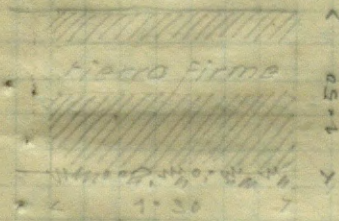 tierra firme
1.50
1.30